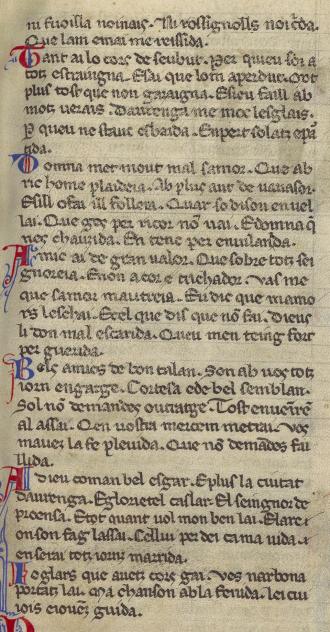 ni fuoilla noinais. Ni rossignolls noi crida.
Que lam en mai me reissida.
Tant ai lo cors deseubut. Per quieu soi a
totz estraingna. E sai que lom a perdut. Molt
plus tost que non gazaingna. E sieu faill ab
motz verais. Daurenga me moc lesglais.
P queu ne stauc esbaida. En pert solatz e ꝑ
tida.
Domna met mout mal samor. Que ab
ric home plaideia. Ab plus aut de uauasor.
E sill o fai il folleia. Quar so dison en uel
lai. Que ges per ricor nō uai. E domna q̄
nes chauzida. En tenc per enuilanida.
Amic ai de gran ualor. Que sobre totz sei
gnoreia. E non a cor e trichador. Vas me
que samor mautreia. Eu dic que mamo
rs leschai. E cel que dis que nō fai. Dieus
li don mal escarida. Queu men teing fort
per guerida.
Bels amics de bon talan. Son ab uos totz
iorn en gatge. Cortesa e de bel semblan.
Sol nō demandes outratge. Tost en uēretz
al assai. Qen uostra merceim metrai. Vos
mauetz la fe pleuida. Que nō demādes fai
llida.
A dieu coman bel esgar. E plus la ciutat
daurenga. E glorietel caslar. El seingnor de
proensa. E tot quant uol mon ben lai. E larc
on son fag lassai. Celliu perdei ca ma uida. e
en serai totz iornz marrida.
Ioglars que auetz cors gai. Ves narbona
portatz lai. Ma chanson ab la fenida. Lei cui
iois e iouen guida.